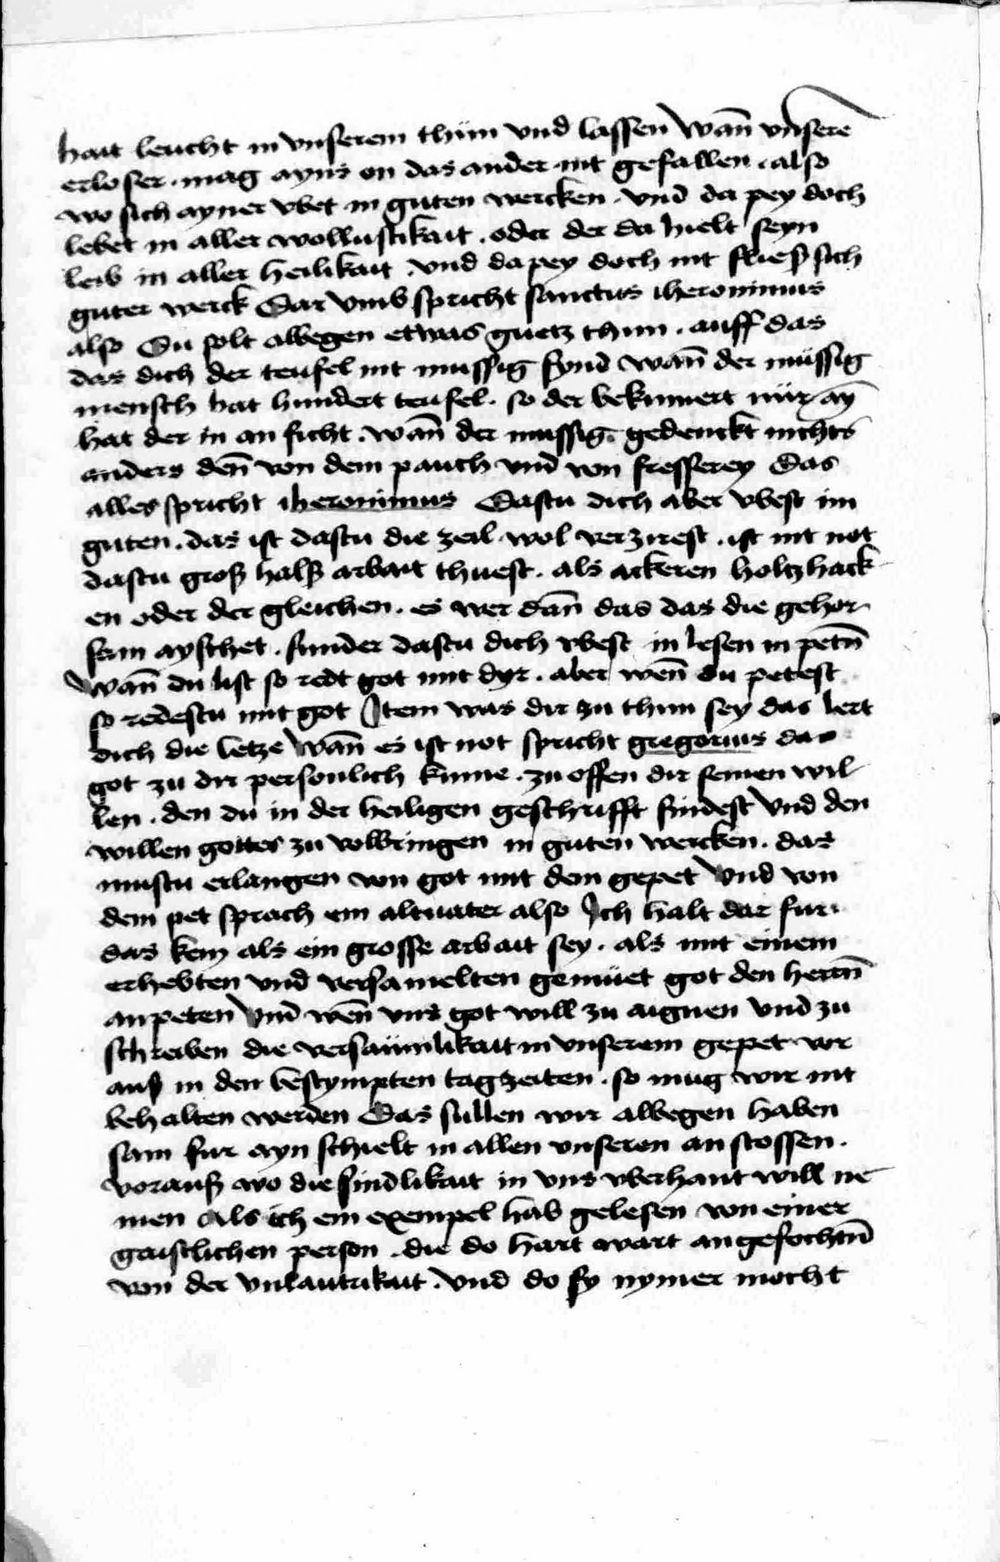 hait leucht in vnserem thůn vnd lassen Wañ vnsere
erloser · mag ayns on das ander nit gefallen · also
wo sich ayner vbet in guten wercken · vnd da pey doch
lebet in aller wollustikait · oder der da hielt seyn
leib in aller heilikait · vnd da pey doch nit fliess sich
guter werck Dar vmb spricht sanctus iheronimus
also Du solt albegen etwas guetz thun · auff das
das dich der teufel nit mussig fynd wañ der müssig
mensch hat hundert teufel · so der bekumert nür ay̅
hat der in an ficht · wañ der mussig gedenckt nichts
anders deñ von dem pauch vnd von fresserey Das
alles spricht iheronimus Dastu dich aber vbest im
guten · das ist dastu die zeil wol verzirest · ist nit not
dastu groß halß arbait thuest · als ackeren holtzhack
en oder der gleichen · es wer dañ das das die gehor
sam aysthet · sunder dastu dich vbest in lesen in petñ
Wañ du list so redt got mit dyr · aber weñ du petest
so redestu mit got Item was dir zu thun sey das lert
dich die letze Wañ es ist not spricht gregorius das
got zu dir personlich kume · zu offen dir seinen wil
len · den du in der heiligen geschrifft findest Vnd den
willen gottes zu volbringen in guten wercken · das
mustu erlangen von got mit dem gepet Vnd von
dem pet sprach ein altuater also Ich halt dar fur
das kein als ein grosse arbait sey · als mit einem
erhebten vnd versamelten gemüet got den herrñ
anpeten Vnd weñ vns got will zu aignen vnd zu
schreiben die versaümlikait in vnserem gepet vor
auß in den bestympten tagzeiten · so mug wir nit
behalten werden Das sullen wir albegen haben
sam fur ayn schielt in allen vnseren anstossen ·
vorauß wo die sindlikait in vns vberhant will ne
men Als ich ein exempel hab gelesen von einer
gaistlichen person · die do hart wart angefochtñ
von der vnlautrikait · vnd do sy nymer mocht